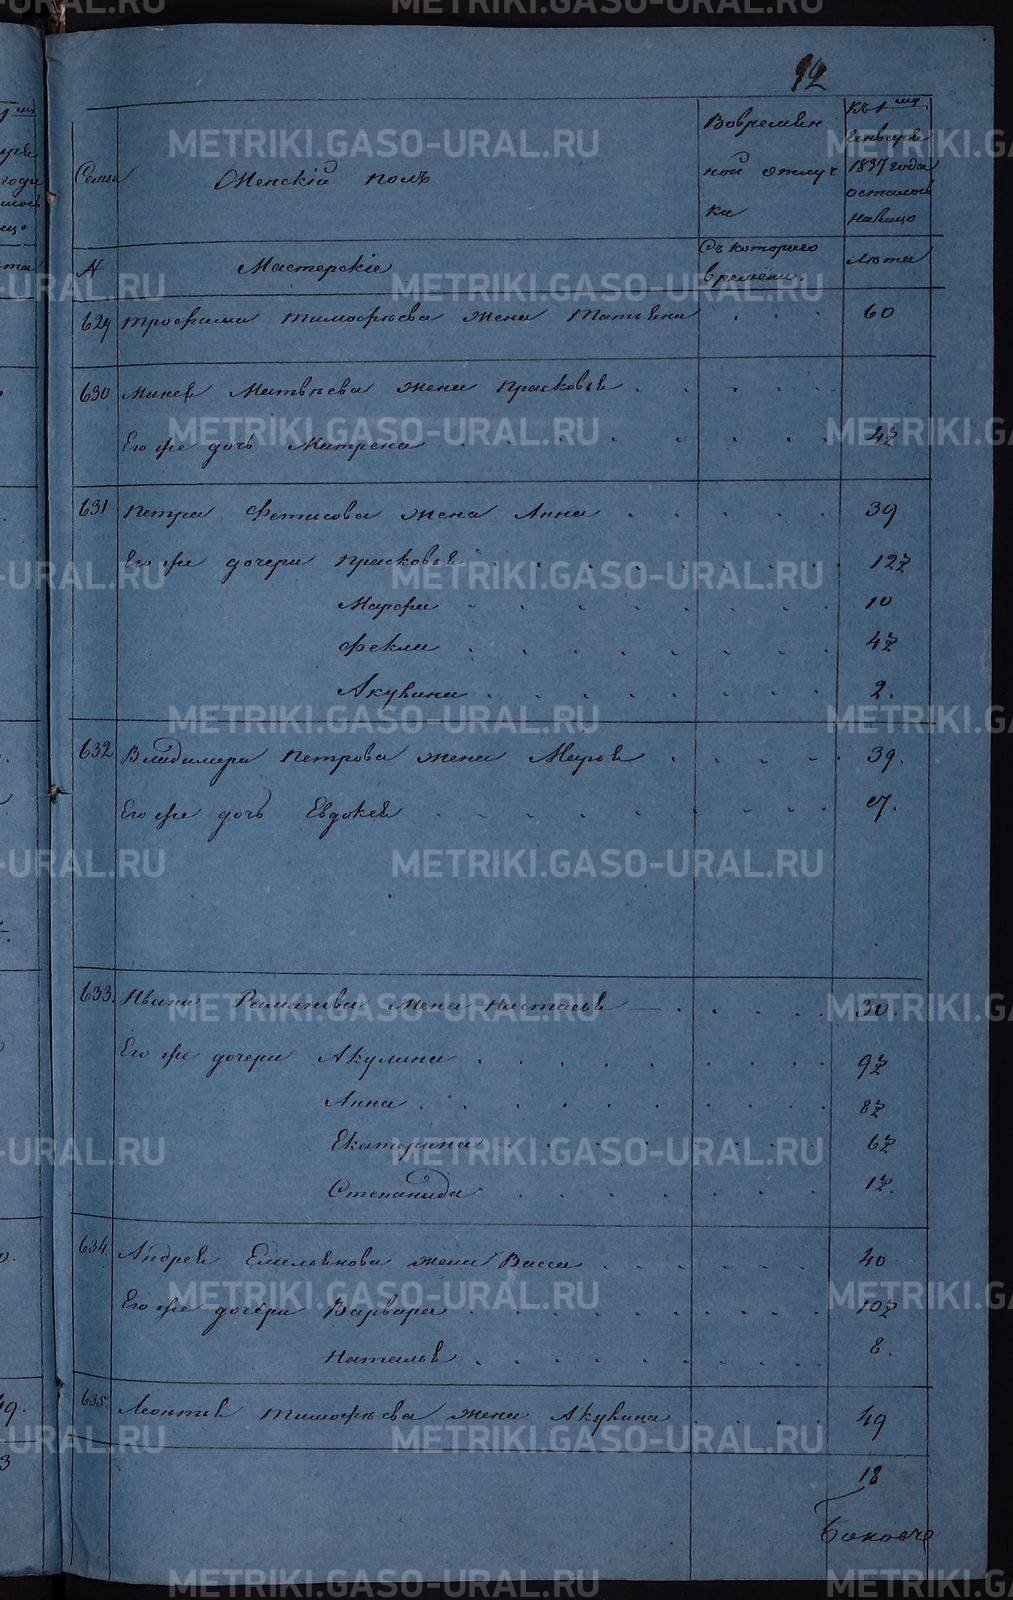 92
Семьи Женскій полъ Вовремян къ 1му
ной отлуч Генваря
ка 1837 года
осталось
налицо
№ Мастерскіе Съ котораго лета
времени.
629 Трофима Тимофѣева жена Татьяна 60
630 Макея Матвѣева жена Прасковья
Его же дочь Матрена 4½
631 Петра Фетисова жена Анна 39
Его же дочери Прасковья 12½
Марфа 10
Фекла 4½
Акулина 2.
632 Владимера Петрова жена Марья 39.
Его же дочь Евдокея 7.
633. Ивана Романова жена Настасья 30.
Его же дочери Акулина 9½
Анна 8½
Екатерина 6½
Степанида 1½.
634. Андрея Емельянова жена Васса 40
Его же дочери Варвара 10½
Наталья 8.
635. Леонтья Тимофѣева жена Акулина 49
18
METRIKI.GASO-URAL.RU